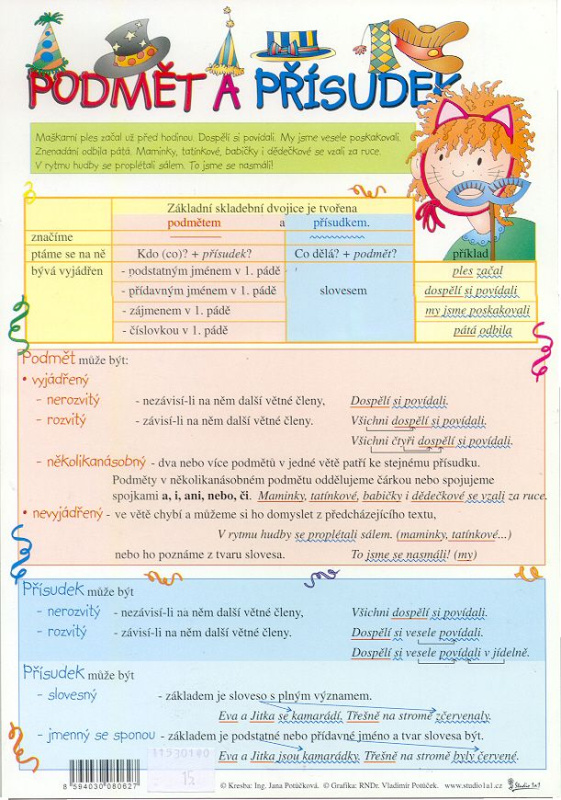 PODMĚT A PŘÍSUDEK
Maškarní ples začal už před hodinou. Dospělí si povídali. My jsme vesele poskakovali.
Znenadání odbila pátá. Maminky, tatínkové, babičky i dědečkové se vzali za ruce.
V rytmu hudby se proplétali sálem. To jsme se nasmáli!
Základní skladební dvojice je tvořena
podmětem a přísudkem.
značíme
ptáme se na ně Kdo (co)? + přísudek? Co dělá? + podmět? příklad
bývá vyjádřen - podstatným jménem v 1. pádě slovesem ples začal
- přídavným jménem v 1. pádě dospělí si povídali
- zájmenem v 1. pádě my jsme poskakovali
- číslovkou v 1. pádě pátá odbila
Podmět může být:
• vyjádřený
- nerozvitý - nezávisí-li na něm další větné členy, Dospělí si povídali.
- rozvitý - závisí-li na něm další větné členy. Všichni dospělí si povídali.
Všichni čtyři dospělí si povídali.
- několikanásobný - dva nebo více podmětů v jedné větě patří ke stejnému přísudku.
Podměty v několikanásobném podmětu oddělujeme čárkou nebo spojujeme
spojkami a, i, ani, nebo, či. Maminky, tatínkové, babičky i dědečkové se vzali za ruce.
• nevyjádřený - ve větě chybí a můžeme si ho domyslet z předcházejícího textu,
V rytmu hudby se proplétali sálem. (maminky, tatínkové...)
nebo ho poznáme z tvaru slovesa. To jsme se nasmáli! (my)
Přísudek může být
- nerozvitý - nezávisí-li na něm další větné členy, Všichni dospělí si povídali.
- rozvitý - závisí-li na něm další větné členy. Dospělí si vesele povídali.
Dospělí si vesele povídali v jídelně.
Přísudek může být
- slovesný - základem je sloveso s plným významem.
Eva a Jitka se kamarádí. Třešně na stromě zčervenaly.
- jmenný se sponou - základem je podstatné nebo přídavné jméno a tvar slovesa být.
Eva a Jitka jsou kamarádky. Třešně na stromě byly červené.
8 594030 080627
11530140
15
© Kresba: Ing. Jana Potůčková. © Grafika: RNDr. Vladimír Potůček. www.studio1a1.cz Studio 1a1